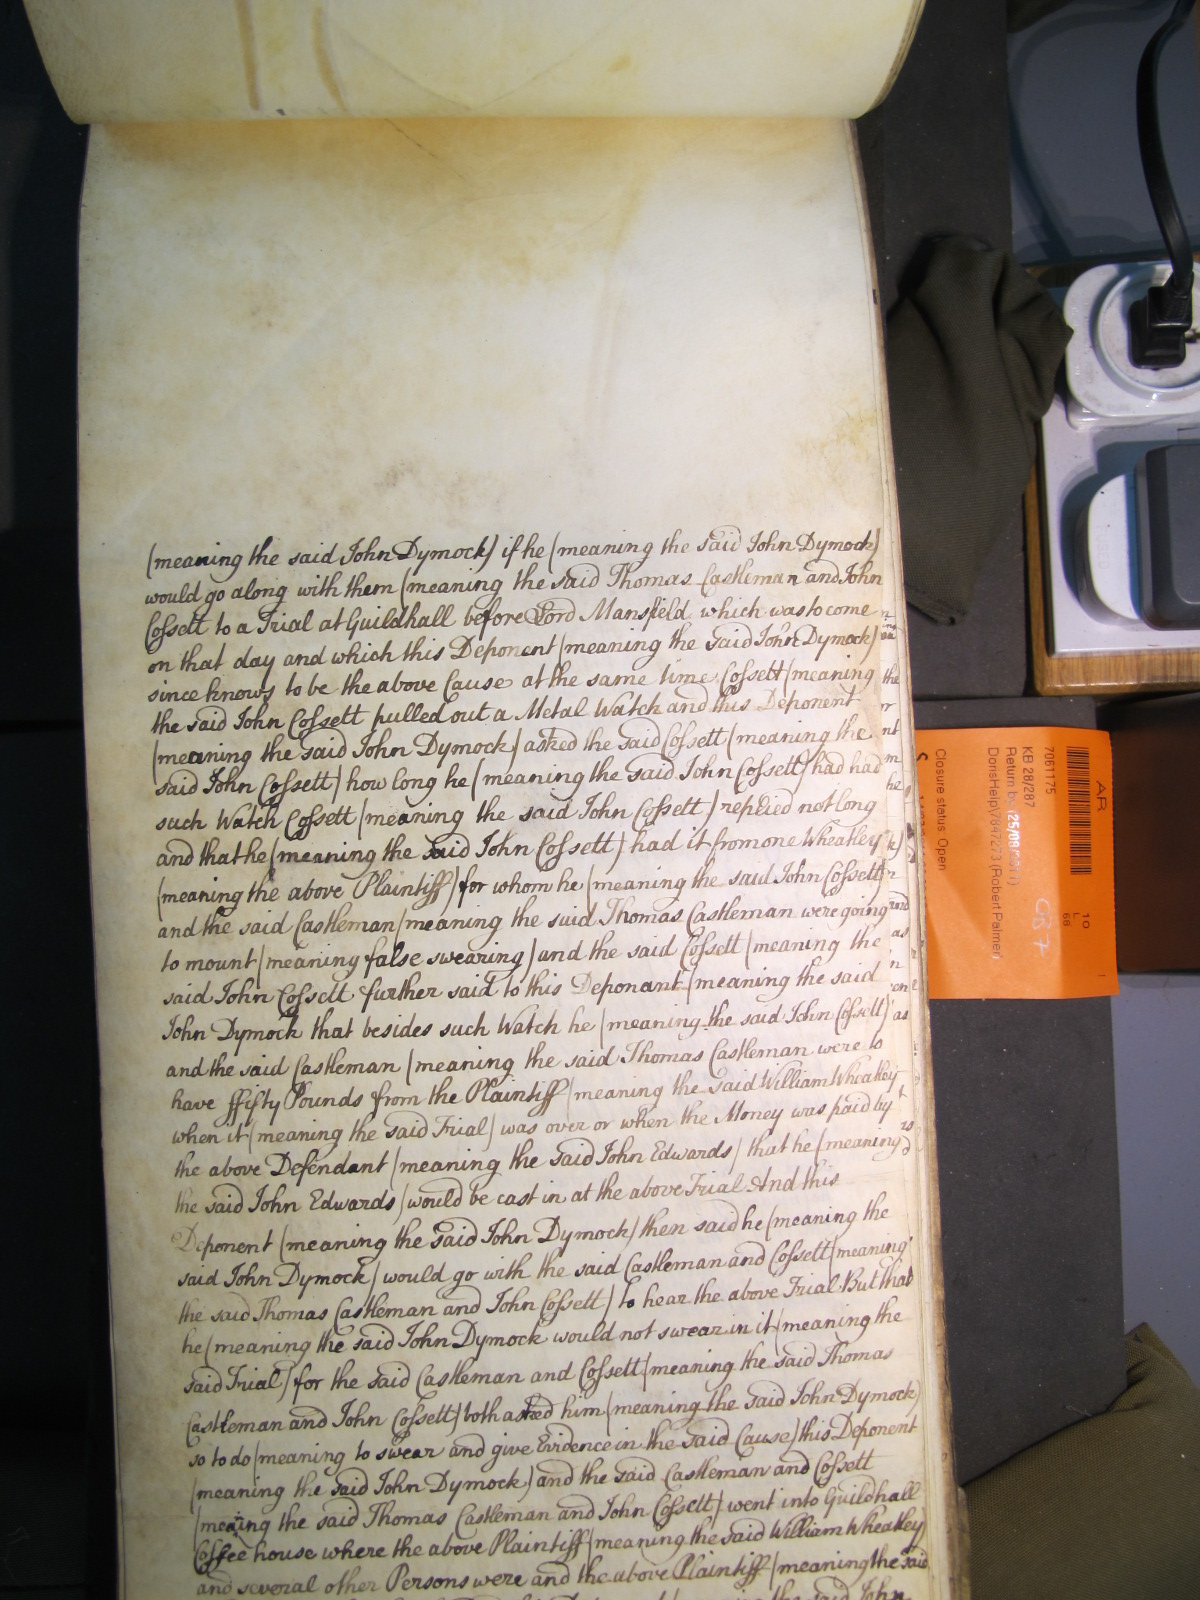 (meaning the said John Dymock) if he (meaning the said John Dymock)
would go along with them (meaning the said Thomas Castleman and John
Cossett to a Trial at Guildhall before Lord Mansfield which was to come
on that day and which this Deponent (meaning the said John Dymock)
since knows to be the above Cause at the same time Cossett (meaning
the said John Cossett pulled out a Metal Watch and this Deponent
(meaning the said John Dymock) asked the said Cossett (meaning the
said John Cossett) how long he (meaning the said John Cossett) had had
such Watch Cossett (meaning the said John Cossett) replied not long
and that he (meaning the said John Cossett) had it from one Wheatley
(meaning the above Plaintiff) for whom he (meaning the said John Cossett)
and the said Castleman (meaning the said Thomas Castleman were going
to mount (meaning false swearing) and the said Cossett (meaning the
said John Cossett further said to this Deponant (meaning the said
John Dymock that besides such Watch he (meaning the said John Cossett)
and the said Castleman (meaning the said Thomas Castleman were to
have ffifty Pounds from the Plaintiff (meaning the said William Wheatley
when it (meaning the said Trial) was over or when the Money was paid by
the above Defendant (meaning the said John Edwards) that he (meaning
the said John Edwards) would be cast in at the above Trial And this
Deponent (meaning the said John Dymock) then said he (meaning the
said John Dymock) would go with the said Castleman and Cossett (meaning
the said Thomas Castleman and John Cossett) to hear the above Trial But that
he (meaning the said John Dymock would not swear in it (meaning the
said Trial) for the said Castleman and Cossett (meaning the said Thomas
Castleman and John Cossett) both asked him (meaning the said John Dymock)
so to do (meaning to swear and give Evidence in the said Cause) this Deponent
(meaning the said John Dymock) and the said Castleman and Cossett
(meaning the said Thomas Castleman and John Cossett) went into Guildhall
Coffee house where the above Plaintiff (meaning the said William Wheatley)
and several other Persons were and the above Plaintiff (meaning the said
AR
7061175
KB 28/287
Return by 25/08/
DorisHelp/847273 (Robert Palmer)
Closure status: Open